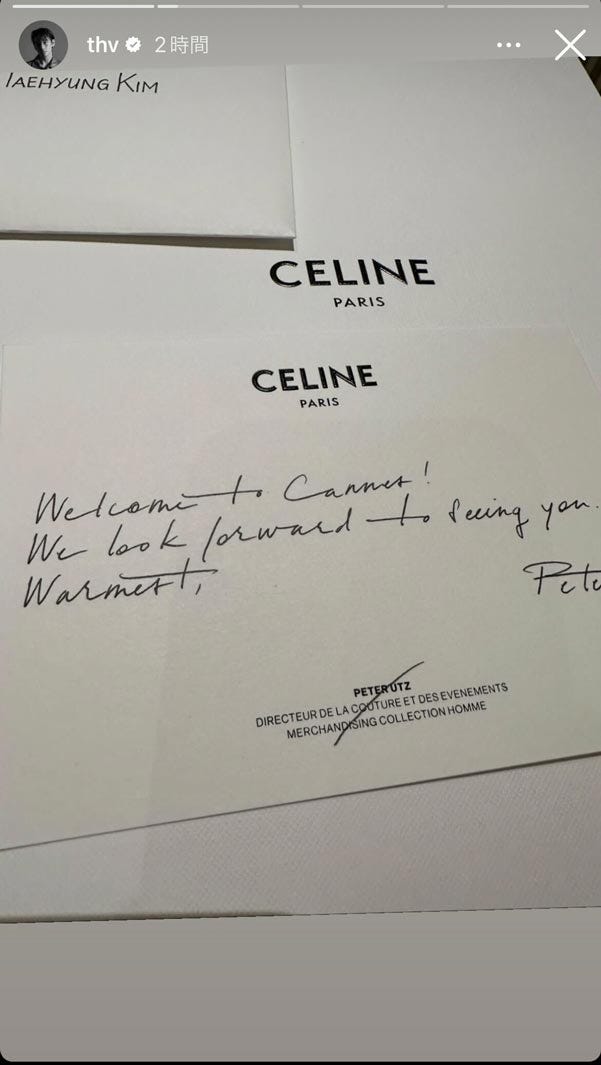 thv 2時間
TAEHYUNG KIM
CELINE
PARIS
CELINE
PARIS
Welcome to Cannes!
We look forward to seeing you.
Warmest,
Pete
PETER UTZ
DIRECTEUR DE LA COUTURE ET DES EVENEMENTS
MERCHANDISING COLLECTION HOMME